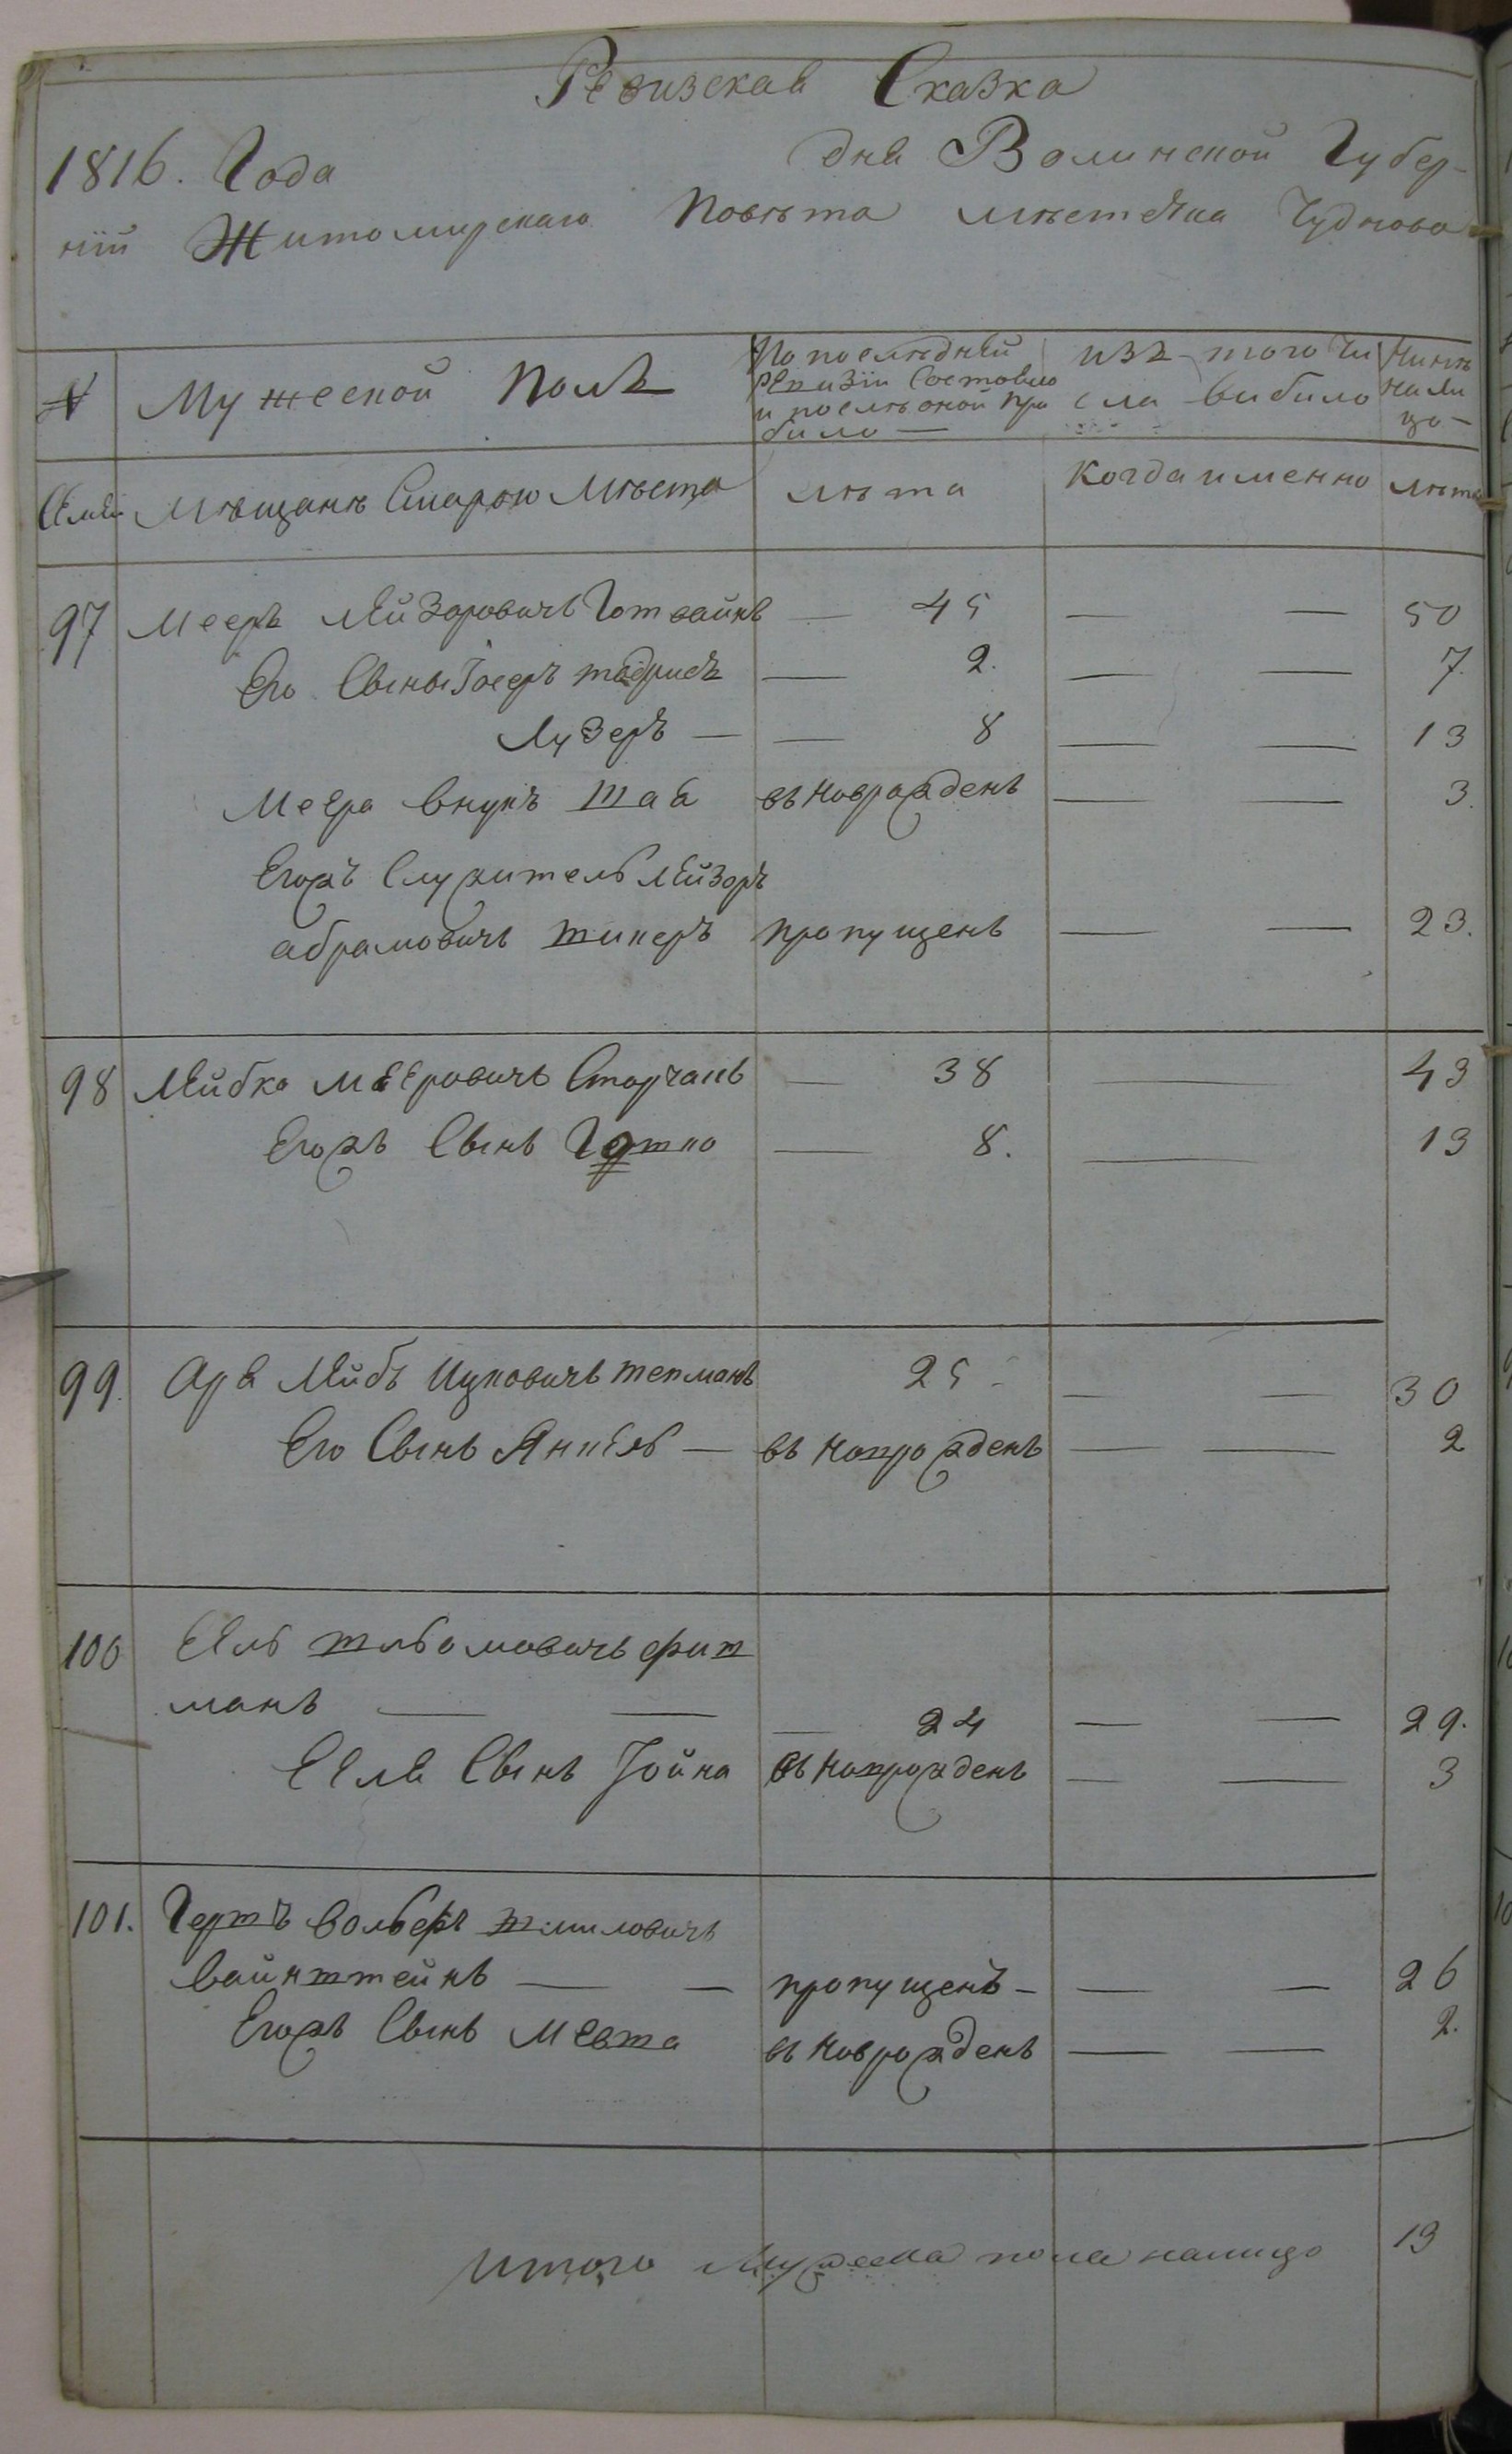 Ревизская Сказка
1816. Года дня Волинской Губер-
нїй Житомирскаго Повѣта мѣстечка Чуднова
№ Мужеской Полъ По последней ревизїи Состояло и послѣ оной прибило — изъ того числа вибило Нинѣ на лицо -
Семьи Мѣщанъ Старою Мѣста лѣта Когда именно лѣта
97 Мееръ Лейзоровичъ Готвайнъ — 45 — — 50
Его Сыны Іосеръ — 2. — — 7.
Лузеръ — — 8 — — 13
Меера внукъ шая въ новрожденъ — — 3.
Егожъ Служитель Лейзоръ
абрамовичъ шперъ пропущенъ — — 23.
98 Лейбко Мееровичъ Сторчакъ — 38 — 43
Егожъ Сынъ Гошко — 8. — 13
99. Аря Лейбъ Ицковичъ тепманъ 25 - — — 30
Его Сынъ Янкель — въ новрожденъ — — 2
100 Еяль шльомовичъ фиш
манъ — — — 24 — — 29.
Ееля Сынъ Іойна въ новрожденъ — — 3
101. Гершъ вольфъ шмиловичъ
вайнштейнъ — — пропущенъ - — — 26
Егожъ Сынъ Мевша въ новрожденъ — — 2.
Итого Мужеска пола налицо 13